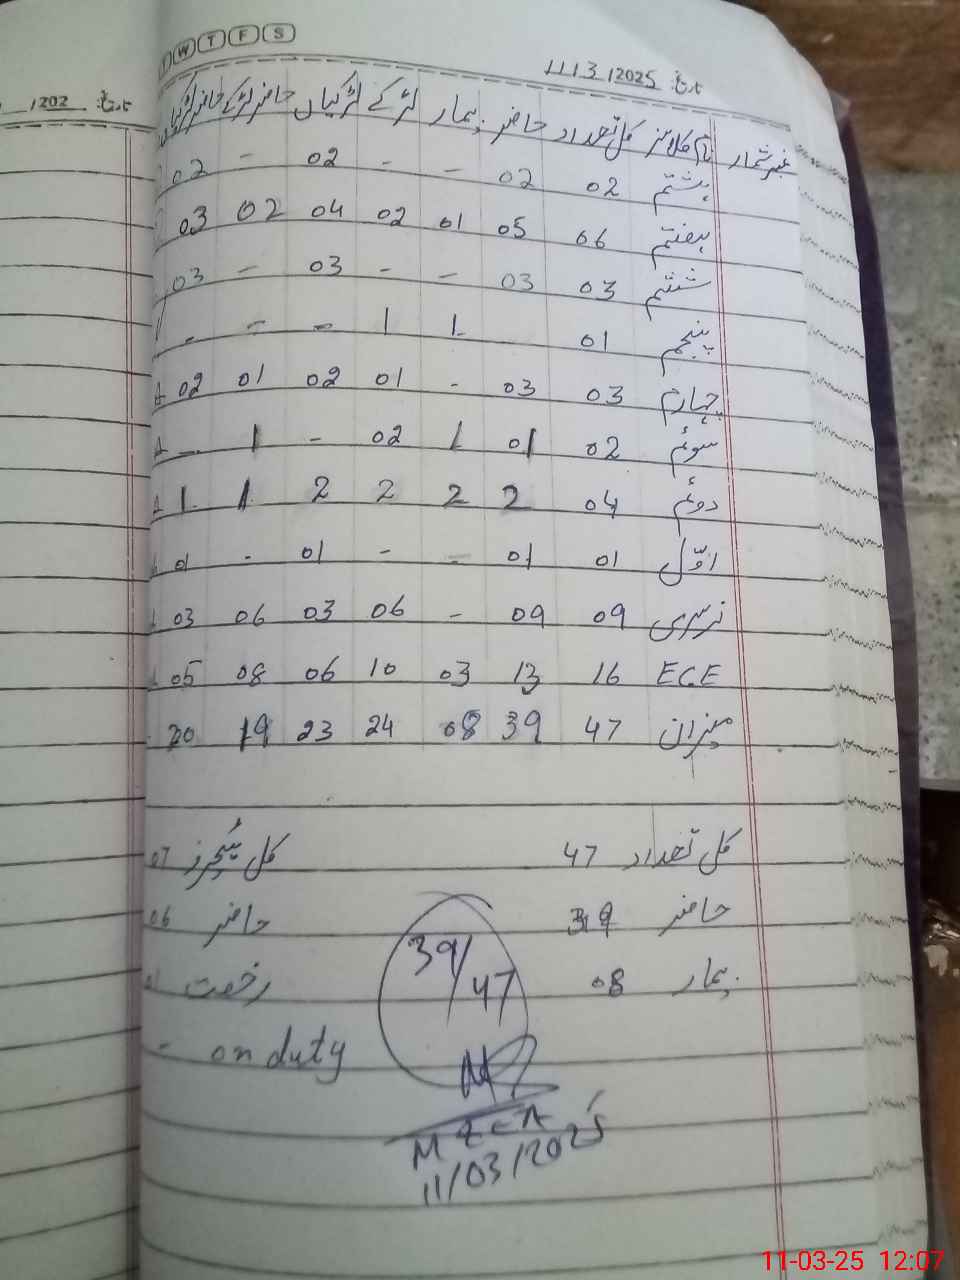 W T F S
تاریخ: 11/3/2025
نمبر شمار نام کلاسز کل تعداد حاضر بیمار لڑکے لڑکیاں حاضر لڑکے حاضر لڑکیاں
ہشتم 02 02 - - 02 - 02
ہفتم 06 05 01 02 04 02 03
ششم 03 03 - - 03 - 03
پنجم 01 1 1 - - -
چہارم 03 03 - 01 02 01 02
سوئم 02 01 1 02 - 1 -
دوئم 04 2 2 2 2 1 1
اوّل 01 01 - - 01 - 01
نرسری 09 09 - 06 03 06 03
ECE 16 13 03 10 06 08 05
میزان 47 39 08 24 23 19 20
کل تعداد 47 کل ٹیچرز 07
حاضر 39 حاضر 06
بیمار 08 رخصت 01
39/47
on duty -
11/03/2025
تاریخ: 202
11-03-25 12:07